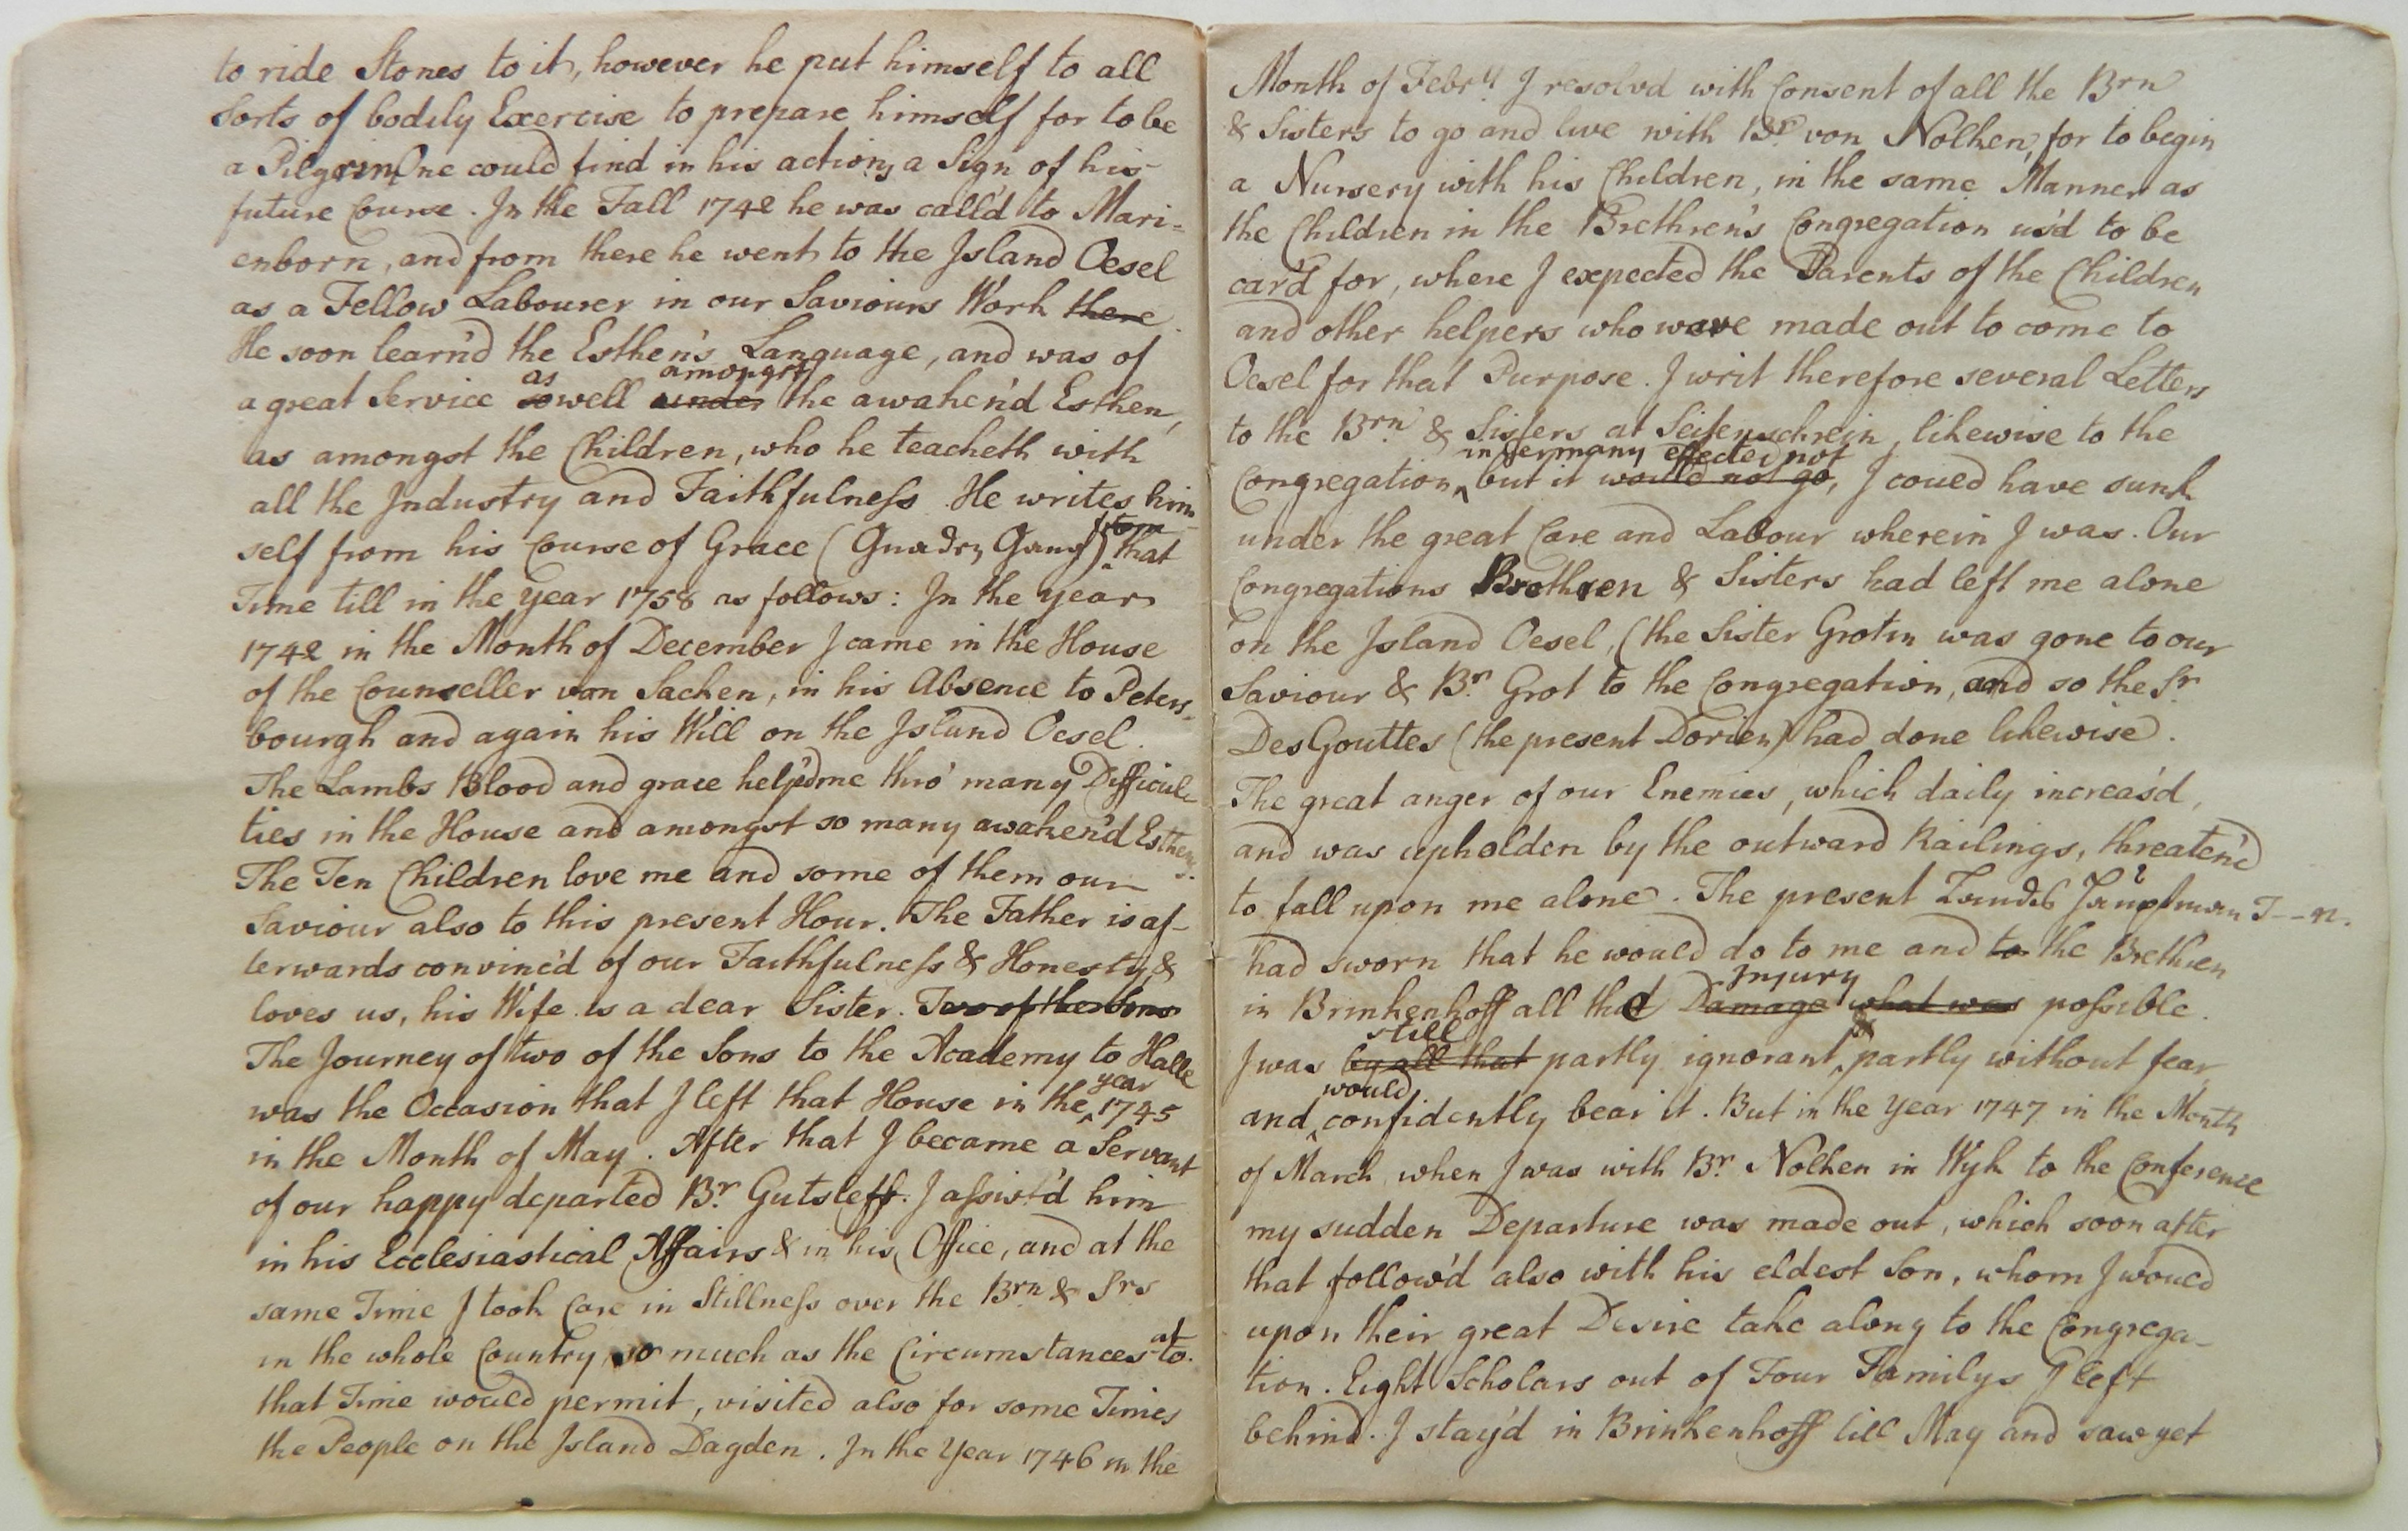 to ride Stones to it, however he put himself to all
Sorts of bodily Exercise to prepare himself for to be
a Pilgrim One could find in his actions a Sign of his
future Course. In the Fall 1742 he was call'd to Mari=
enborn, and from there he went to the Island Oesel
as a Fellow Labourer in our Saviours Work there
He soon learn'd the Esthen's Language, and was of
as amongst
a great Service so well under the awaken'd Esthen,
as amongst the Children, who he teacheth with
all the Industry and Faithfulness. He writes him-
from
self from his Course of Grace (Gnaden Gang) that
Time till in the year 1758 as follows: In the year
1742 in the Month of December I came in the House
of the Counseller von Sacken, in his Absence to Peters=
bourgh and again his Will on the Island Oesel.
The Lambs Blood and grace help'd me thro' many Difficul-
ties in the House and amongst so many awaken'd Esthens.
The Ten Children love me and some of them our
Saviour also to this present Hour. The Father is af-
terwards convinc'd of our Faithfulness & Honesty &
loves us, his Wife is a dear Sister. Two of the Sons
The Journey of two of the Sons to the Academy to Halle
year
was the Occasion that I left that House in the 1745
in the Month of May. After that I became a Servant
of our happy departed Br. Gutsleff. I assist'd him
in his Ecclesiastical Affairs & in his Office, and at the
same Time I took Care in Stillness over the Brn & Srs
at
in the whole Country so much as the Circumstances to
that Time would permit, visited also for some Times
the People on the Island Dagden. In the Year 1746 in the
Month of Febry. I resolvd with Consent of all the Brn
& Sisters to go and live with Br. von Nolken, for to begin
a Nursery with his Children, in the same Manner as
the Children in the Brethren's Congregation us'd to be
car'd for, where I expected the Parents of the Children
and other helpers who ware made out to come to
Oesel for that Purpose. I writ therefore several Letters
to the Brn & Sisters at Seifenschrein, likewise to the
in Germany effected not
Congregation, but it would not go, I coued have sunk
under the great Care and Labour wherein I was. Our
Congregations Brethren & Sisters had left me alone
on the Island Oesel, (the Sister Grotin was gone to our
Saviour & Br. Grot to the Congregation, and so the Sr.
DesGouttes (the present Dorien) had done likewise.
The great anger of our Enemies, which daily increas'd,
and was upholden by the outward Railings, threaten'd
to fall upon me alone. The present Lands Hauptman T--n.
had sworn that he would do to me and to the Brethren
Injury
in Brinkenhoff all that Damage what was possible.
still
I was by all that partly ignorant, partly without fear
would
and confidently bear it. But in the Year 1747 in the Month
of March when I was with Br. Nolken in Wyk to the Conference
my sudden Departure was made out, which soon after
that follow'd also with his eldest Son, whom I woued
upon their great Desire take along to the Congrega-
tion. Eight Scholars out of Four Familys I left
behind. I stay'd in Brinkenhoff till May and saw yet